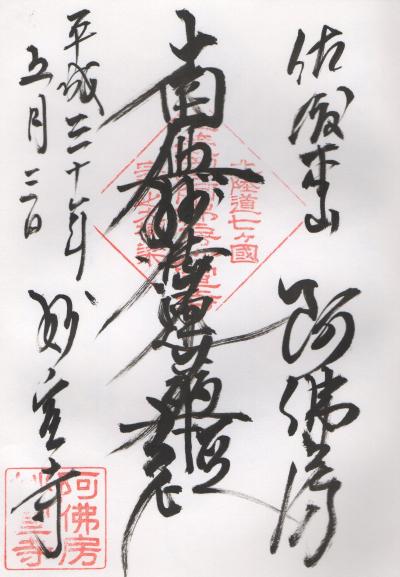 佐渡本山
阿佛房
南無妙法蓮華経
平成三十年
五月三日
妙宣寺
北陸道七ヶ國
阿佛房
妙宣寺